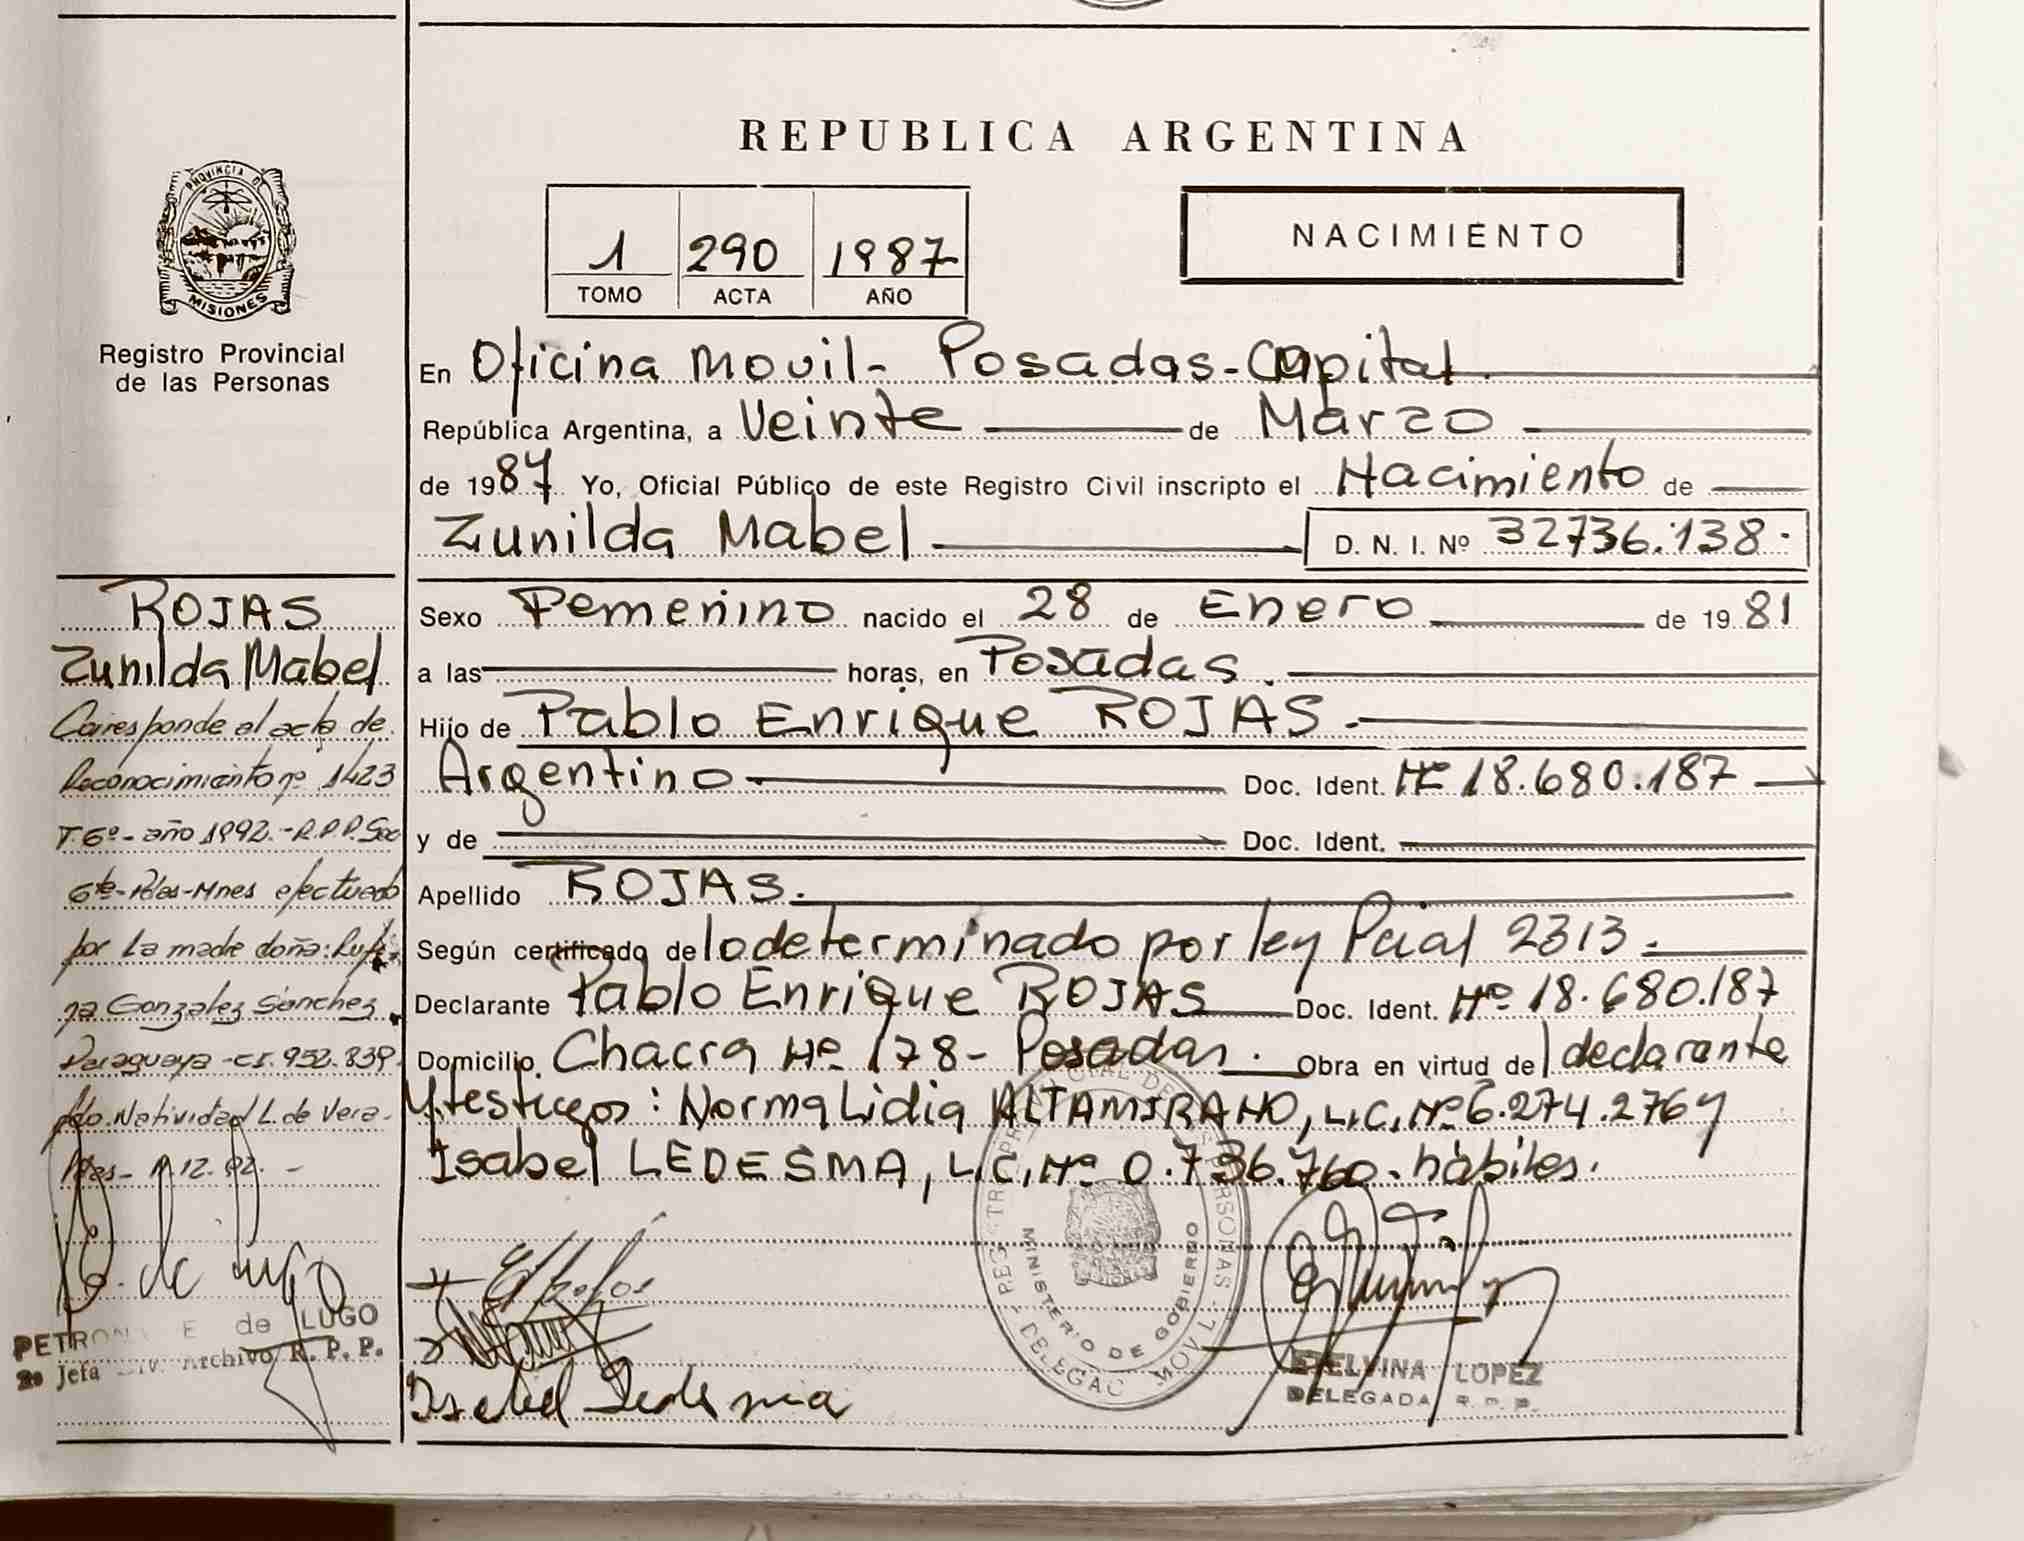 REPUBLICA ARGENTINA
PROVINCIA D
MISIONES
Registro Provincial
de las Personas
1 290 1987
TOMO ACTA AÑO
NACIMIENTO
En Oficina Movil- Posadas-Capital
República Argentina, a Veinte de Marzo
de 1987 Yo, Oficial Público de este Registro Civil inscripto el Nacimiento de
Zunilda Mabel D. N. I. Nº 32736.138.
Sexo Femenino nacido el 28 de Enero de 1981
a las horas, en Posadas.
Hijo de Pablo Enrique ROJAS.-
Argentino Doc. Ident. Nº 18.680.187
y de Doc. Ident.
Apellido ROJAS.
Según certificado de lo determinado por ley Pcial 2313.-
Declarante Pablo Enrique ROJAS Doc. Ident. Nº 18.680.187
Domicilio Chacra Nº 178- Posadas. Obra en virtud de l declarante
y testigos: Norma Lidia ALTAMIRANO, L.C. Nº 6.274.276 y
Isabel LEDESMA, L.C. Nº 0.736.760. hábiles.
ROJAS
Zunilda Mabel
Corresponde al acta de
Reconocimiento nº 1423
T. 6º- año 1992.- R.P.P. Sec
6te- Pdas-Mnes efectuado
por la madre doña: Rufi
na Gonzalez Sanchez
Paraguaya - C.I. 952.839
fdo. Natividad L. de Vera-
Pdas- 12. 92. -
de Lugo
PETRON E de LUGO
2ª Jefa Archivo R. P. P.
Isabel Ledesma
REGISTRO PROVINCIAL DE LAS PERSONAS
MINISTERIO DE GOBIERNO
DELEGAC MOVIL
ETELVINA LOPEZ
DELEGADA R. P. P.